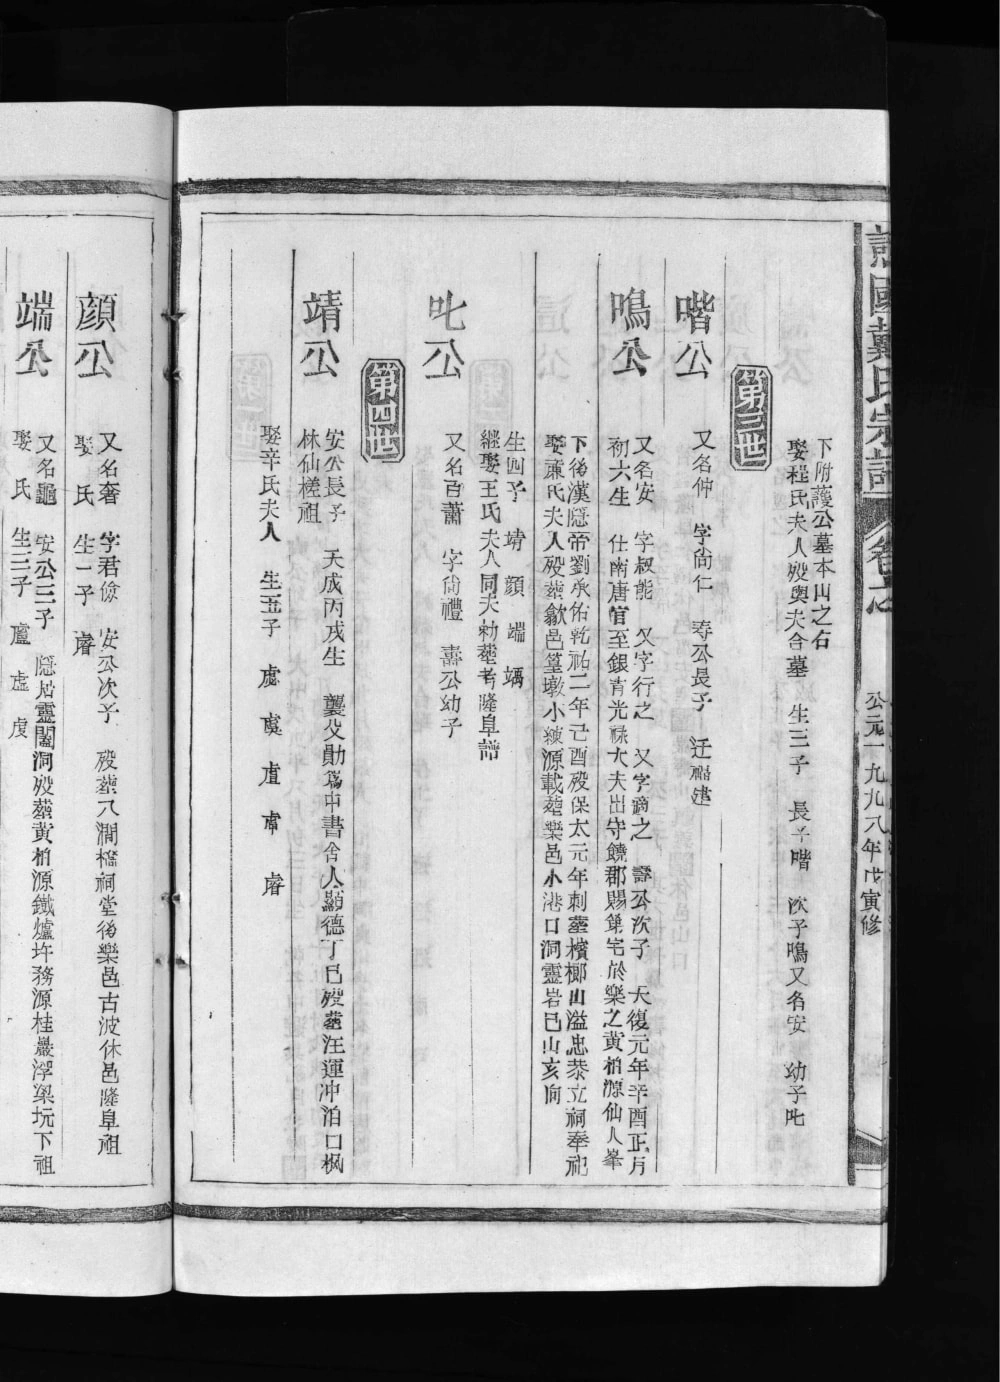 譙國戴氏宗譜
卷之
公元一九九八年戊寅修
下附護公墓本山之右
娶程氏夫人殁與夫合墓 生三子 長子喈 次子鳴又名安 幼子叱
第三世
喈公
又名仲 字尚仁 寿公長子 迁福建
鳴公
又名安 字叔能 又字行之 又字商之 壽公次子 天復元年辛酉正月
初六生 仕南唐官至銀青光祿大夫出守饒郡賜第宅於樂之黄柏源仙人峯
下後漢隱帝劉承佑乾祐二年己酉殁保太元年刺塟檳榔山溢忠恭立祠奉祀
娶 氏夫人殁塟歙邑篁墩小 源載塟樂邑小港口洞靈岩巳山亥向
生四子 靖 顔 端 竬
継娶王氏夫人同夫勅塟考隆阜譜
叱公
又名百蕭 字尙禮 壽公幼子
第四世
靖公
安公長子 天成丙戌生 襲父勛爲中書舍人顯德丁巳殁塟汪運冲泊口枫
林仙槎祖
娶辛氏夫人 生五子 虙 虞 虘 虖 𪧘
顔公
又名奢 字君儉 安公次子 殁塟八澗橋祠堂後樂邑古波休邑隆阜祖
娶 氏 生一子
端公
又名龜 安公三子 隱居靈闔洞殁塟黄柏源鐵爐圩務源桂巖浮梁坑下祖
娶 氏 生三子 廬 虚 虔